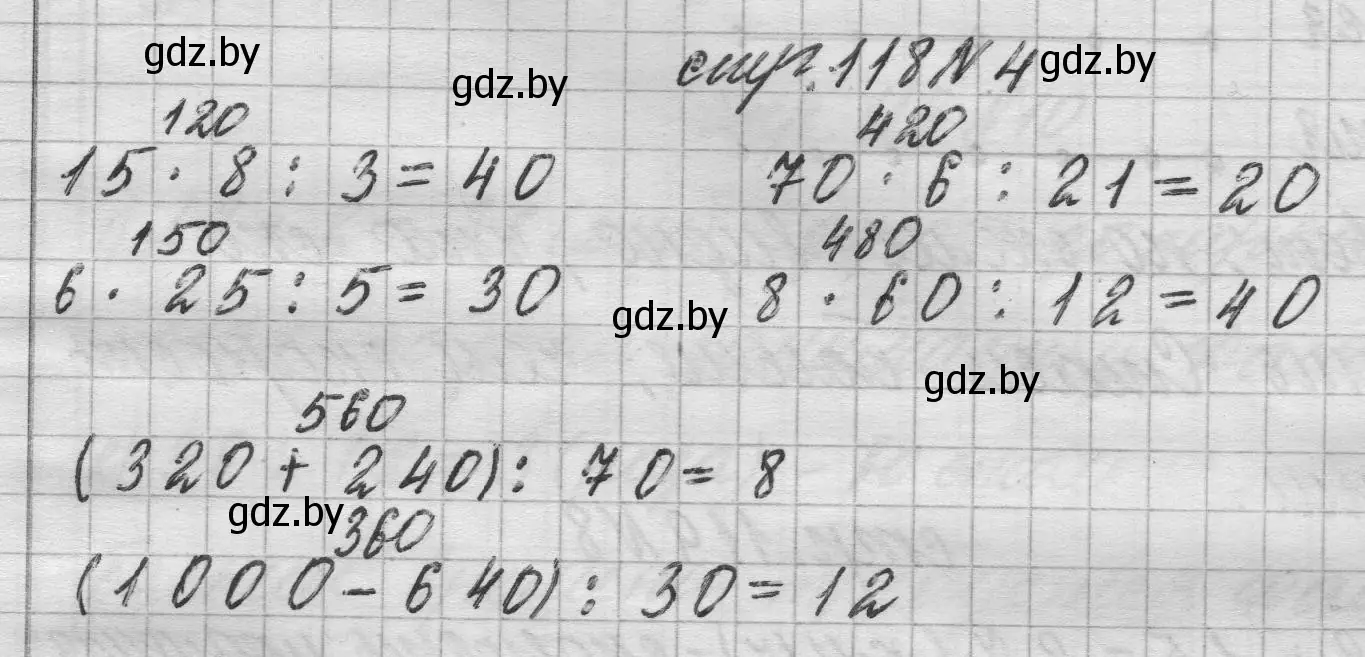 gdz.by
gdz.by
стр. 118 N 4
gdz.by
120
15 · 8 : 3 = 40
420
70 · 6 : 21 = 20
150
6 · 25 : 5 = 30
480
8 · 60 : 12 = 40
gdz.by
gdz.by
560
(320 + 240) : 70 = 8
gdz.by
360
(1000 - 640) : 30 = 12